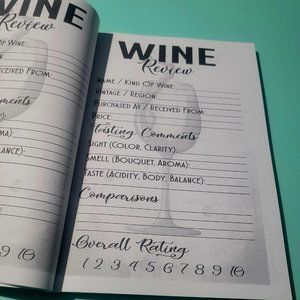 WINE
Review
OF WINE
RECEIVED FROM:
Comments
MA):
ALANCE):
9 10
WINE
Review
NAME / KIND OF WINE
VINTAGE / REGION:
PURCHASED AT / RECEIVED FROM:
PRICE
Tasting Comments
SIGHT (COLOR, CLARITY):
SMELL (BOUQUET, AROMA):
TASTE (ACIDITY, BODY, BALANCE):
Comparisons
Overall Rating
1 2 3 4 5 6 7 8 9 10